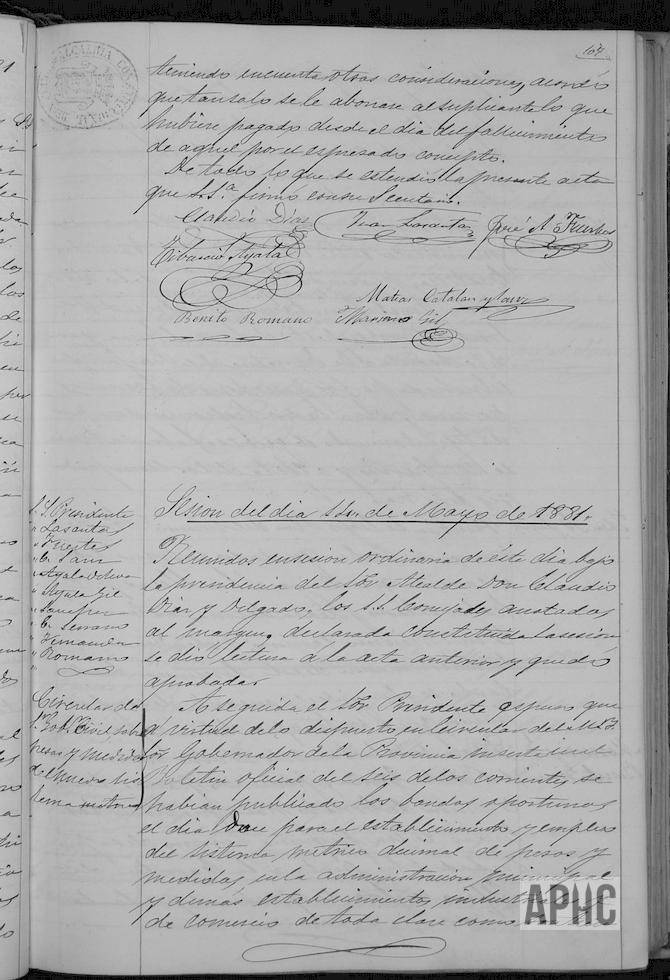 107
teniendo encuenta otras consideraciones, acordó
que tan solo se le abonase al suplicante lo que
hubiere pagado desde el dia del fallecimiento
de aquel por el espresado concepto.
De todo lo que se estendió la presente acta
que S. S.ª firmó con su Secretario.
Claudio Diaz Juan Lasanta José A. Fuertes
Tiburcio Ayala
Matias Catalan y Sanz
Benito Romano Mariano Gil
Sesion del dia de Mayo de 1881.
S. S. Presidente
" Lasanta
" Fuertes
" C. Sanz
" Ayala
" Ayala Gil
" Sanchez
" C. Serrano
" Hernandez
" Romano
Reunidos en sesion ordinaria de éste dia bajo
la presidencia del Sor. Alcalde Don Claudio
Diaz y Delgado, los S. S. Concejales anotados
al margen, declarada constituida la sesion
se dió lectura á la acta anterior y quedó
aprobada.
Circular del
Sor. Gob. Civil sobre
pesas y medidas
del nuevo sis
tema metrico
A seguida el Sor. Presidente espuso que
á virtud de lo dispuesto en Circular del
Sor. Gobernador de la Provincia inserta en el
Boletin oficial del seis de los corrientes, se
habian publicado los bandos oportunos
el dia doce para el establecimiento y empleo
del sistema metrico decimal de pesas y
medidas en la administracion municipal
y demás establecimientos industriales
de comercio de toda clase como
APHC